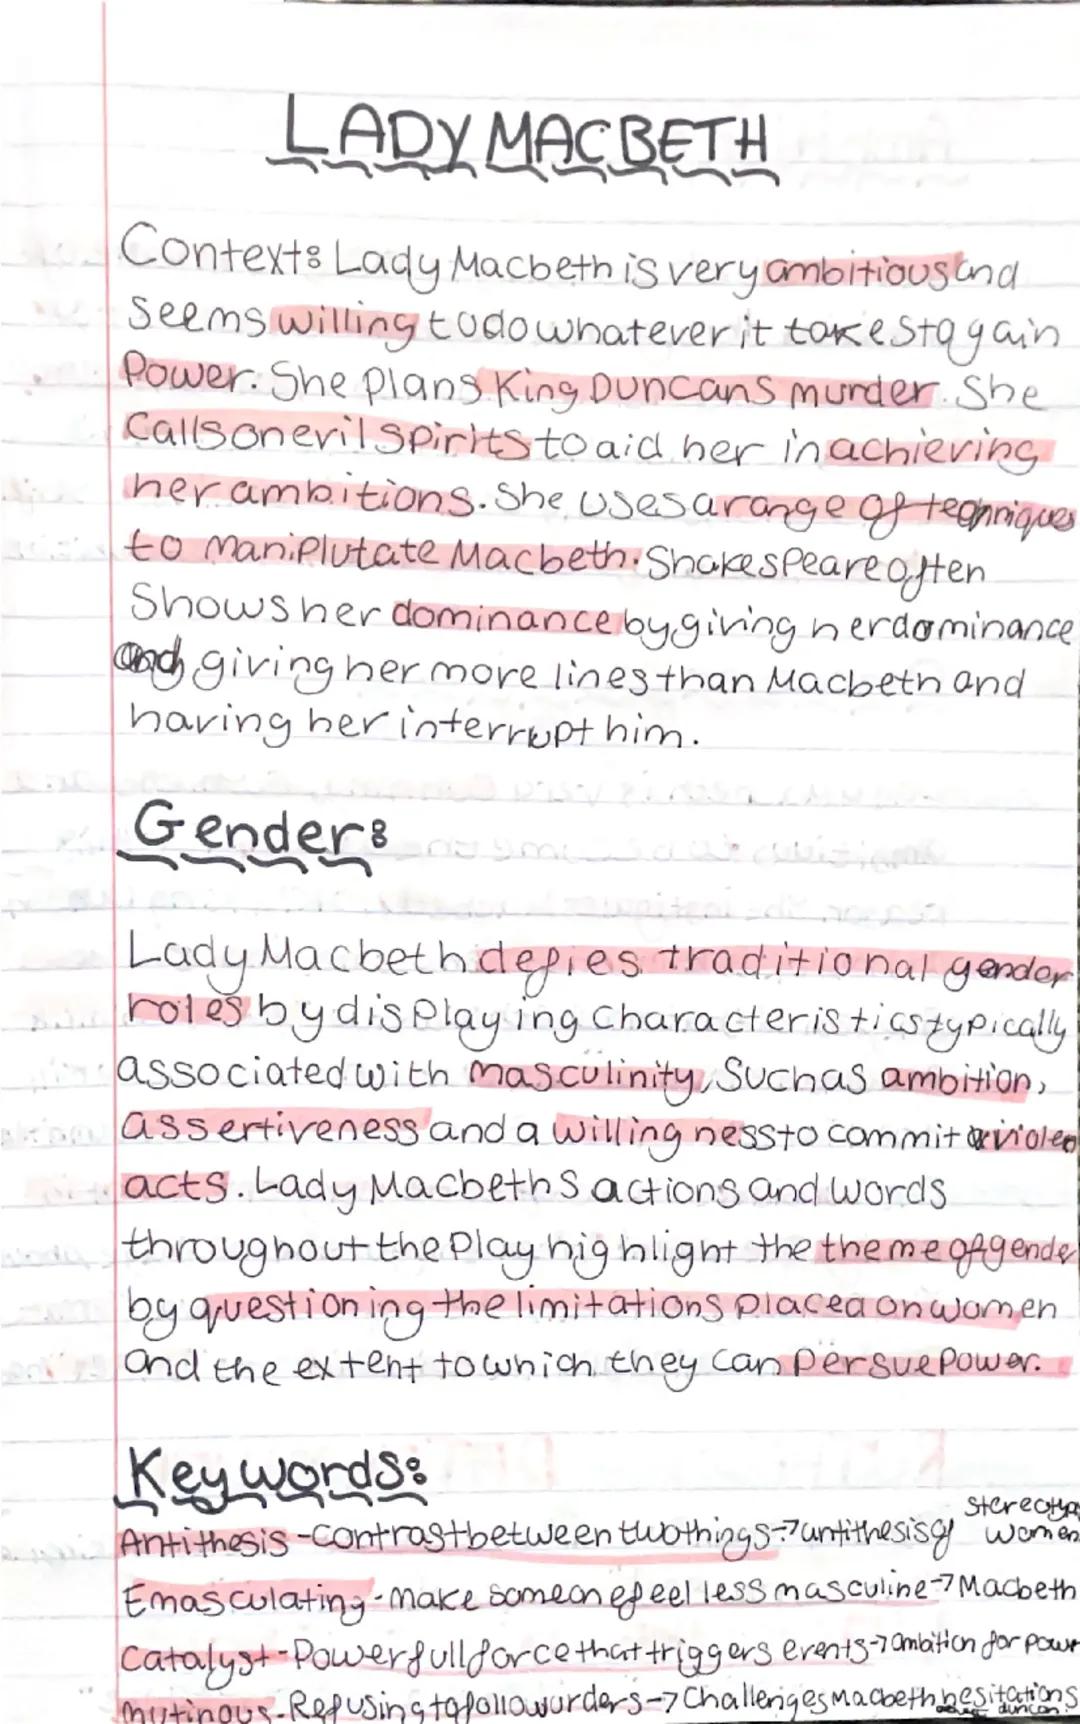 LADY MACBETH
Context: Lady Macbeth is very ambitious and
seems willing to do whatever it takes to gain
Power. She Plans King Duncans murder. She
Calls on evil spirits to aid her in achieving
her ambitions. She uses a range of techniques
to maniplutate Macbeth. Shakespeare often
Shows her dominance by giving her dominance
and giving her more lines than Macbeth and
having her interrupt him.
Gender:
Lady Macbeth defies traditional gender
roles by displaying characteristics typically
associated with masculinity, Such as ambition,
assertiveness and a willingness to commit violen
acts. Lady Macbeths actions and words
throughout the Play highlight the theme of gende
by questioning the limitations placed on women
and the extent to which they can persue power.
Key words:
Antithesis - contrast between two things → antithesis of stereotyp women
Emasculating - make someone feel less masculine → Macbeth
Catalyst - Powerfull force that triggers events → ambition for powr
mutinous - Refusing to follow orders → Challenges Macbeth hesitations duncan